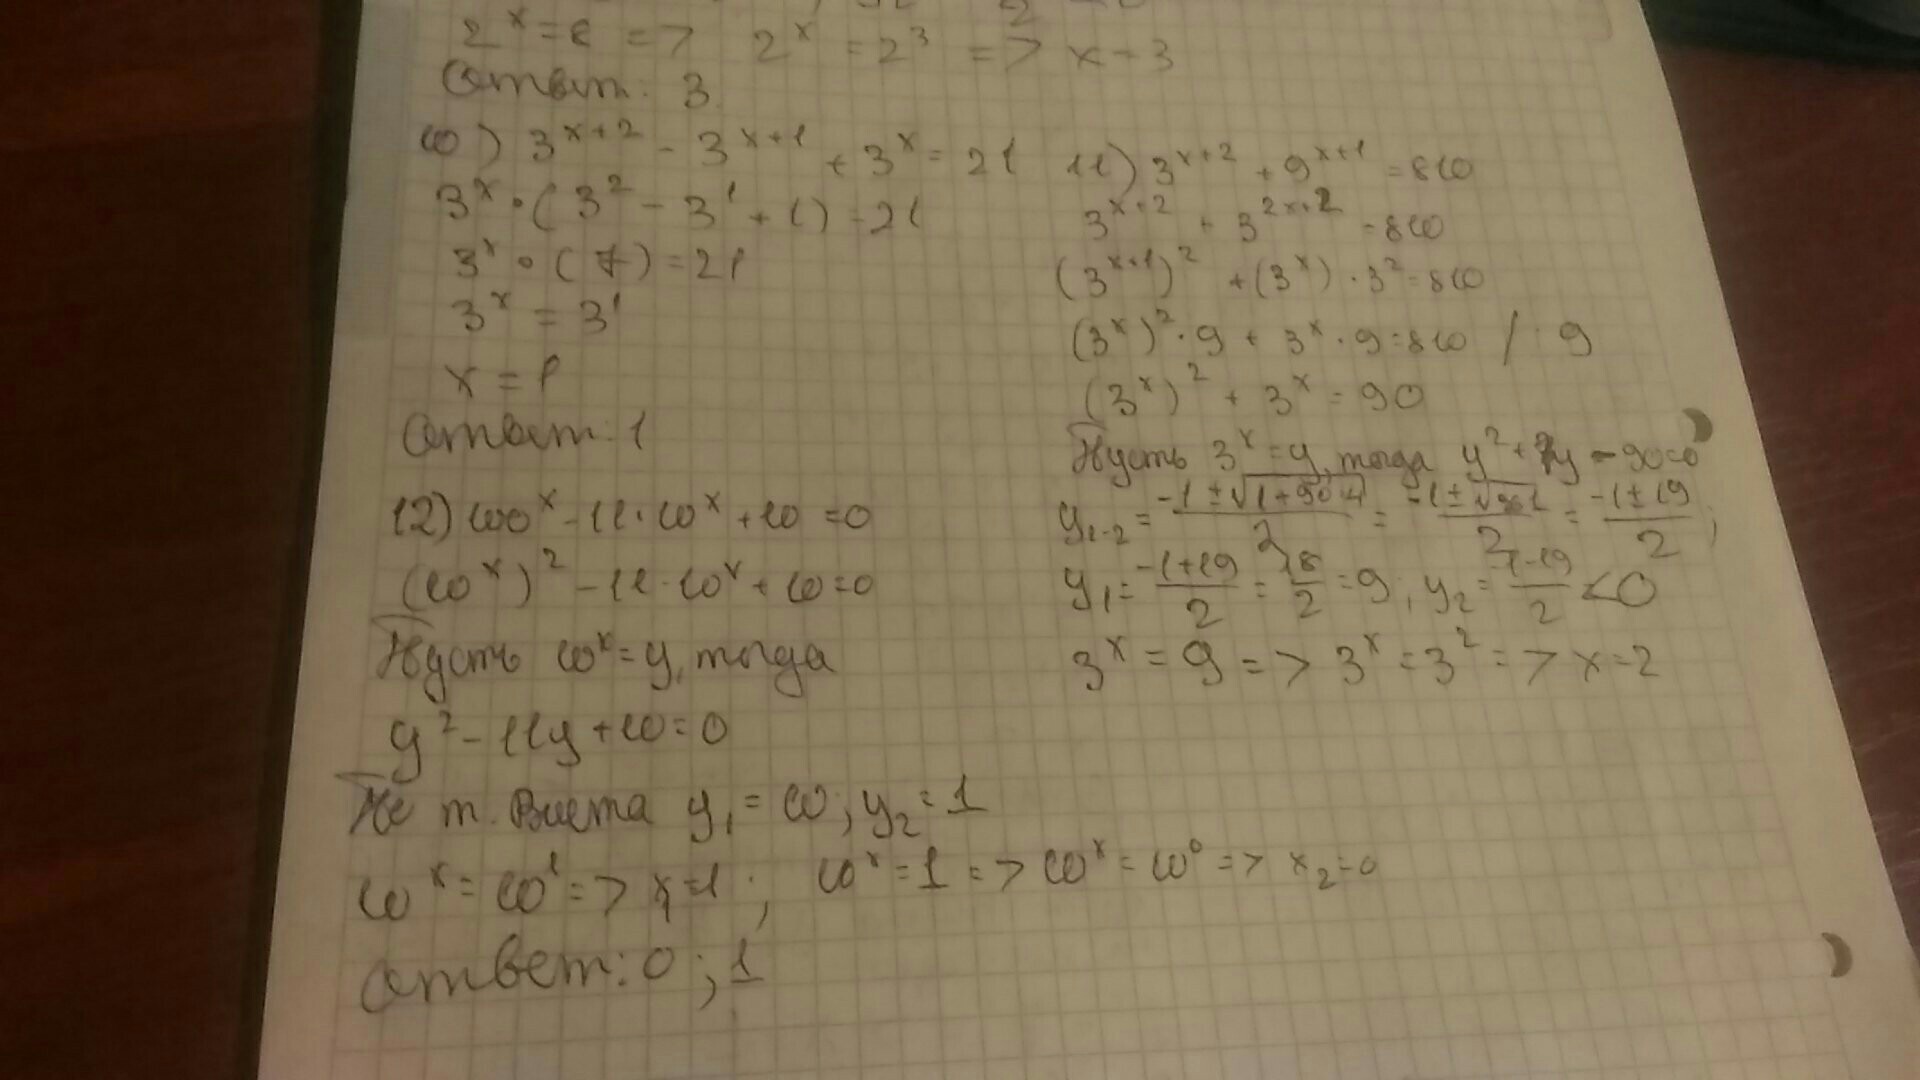 2^x = 8 => 2^x = 2^3 => x = 3
Ответ: 3
10) 3^{x+2} - 3^{x+1} + 3^x = 21
3^x · (3^2 - 3^1 + 1) = 21
3^x · (7) = 21
3^x = 3^1
x = 1
Ответ: 1
12) 100^x - 11 · 10^x + 10 = 0
(10^x)^2 - 11 · 10^x + 10 = 0
Пусть 10^x = y, тогда
y^2 - 11y + 10 = 0
По т. Виета y_1 = 10; y_2 = 1
10^x = 10^1 => x_1 = 1; 10^x = 1 => 10^x = 10^0 => x_2 = 0
Ответ: 0; 1
11) 3^{x+2} + 9^{x+1} = 810
3^{x+2} + 3^{2x+2} = 810
(3^{x+1})^2 + (3^x) · 3^2 = 810
(3^x)^2 · 9 + 3^x · 9 = 810 / : 9
(3^x)^2 + 3^x = 90
Пусть 3^x = y, тогда y^2 + y - 90 = 0
y_{1-2} = \frac{-1 ± √(1+90·4)}{2} = \frac{-1 ± √361}{2} = \frac{-1 ± 19}{2};
y_1 = \frac{-1+19}{2} = \frac{18}{2} = 9; y_2 = \frac{-1-19}{2} < 0
3^x = 9 => 3^x = 3^2 => x = 2